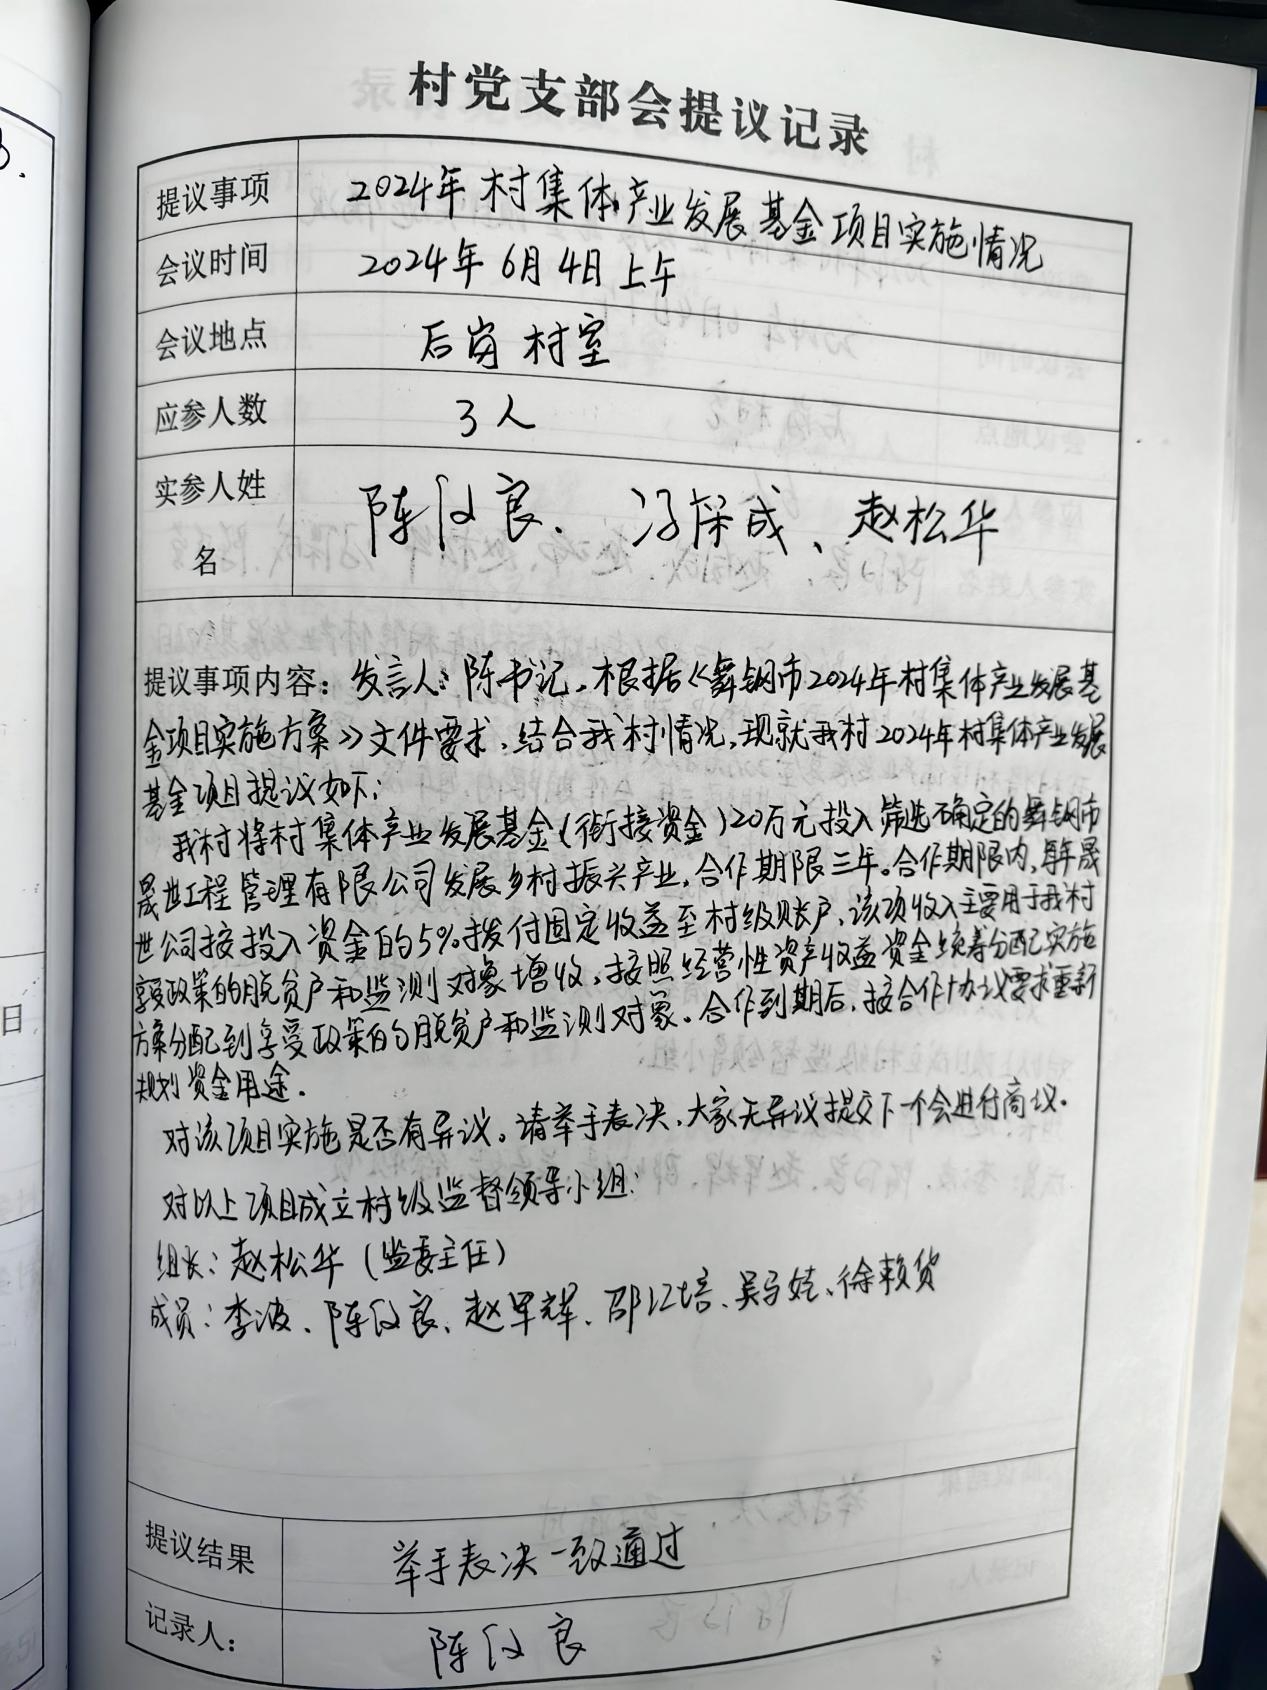 村党支部会提议记录
提议事项 2024年村集体产业发展基金项目实施情况
会议时间 2024年6月4日上午
会议地点 后岗村室
应参人数 3人
实参人姓名 陈 良、冯 成、赵松华
提议事项内容：发言人：陈书记。根据《舞钢市2024年村集体产业发展基
金项目实施方案》文件要求，结合我村情况，现就我村2024年村集体产业发展
基金项目提议如下：
我村将村集体产业发展基金（衔接资金）20万元投入筛选确定的舞钢市
晟世工程管理有限公司发展乡村振兴产业，合作期限三年。合作期限内，每年晟
世公司按投入资金的5%拨付固定收益至村级账户，该项收入主要用于我村
享受政策的脱贫户和监测对象增收，按照经营性资产收益资金统筹分配实施
方案分配到享受政策的脱贫户和监测对象。合作到期后，按合作协议要求重新
规划资金用途。
对该项目实施是否有异议。请举手表决，大家无异议提交下一个会进行商议。
对以上项目成立村级监督领导小组：
组长：赵松华（监委主任）
成员：李波、陈 良、赵军辉、邵 培、吴 、徐赖货
提议结果 举手表决一致通过
记录人： 陈 良
日